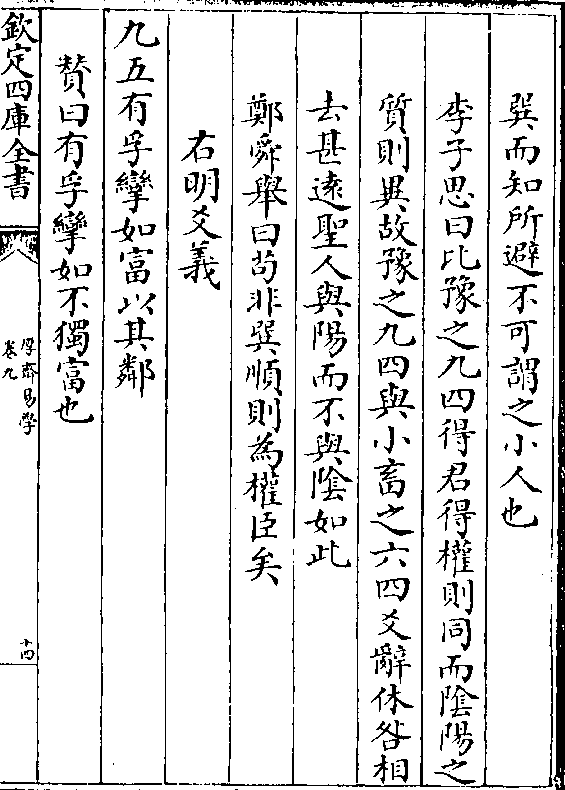 巽而知所避不可謂之小人也
李子思曰比豫之九四得君得權則同而陰陽之
質則異故豫之九四與小畜之六四爻辭休咎相
去甚逺聖人與陽而不與陰如此
鄭舜舉曰苟非巽順則為權臣矣
右明爻義
九五有孚攣如富以其鄰
賛曰有孚攣如不獨富也
欽定四庫全書
厚齋易學
卷九
十四